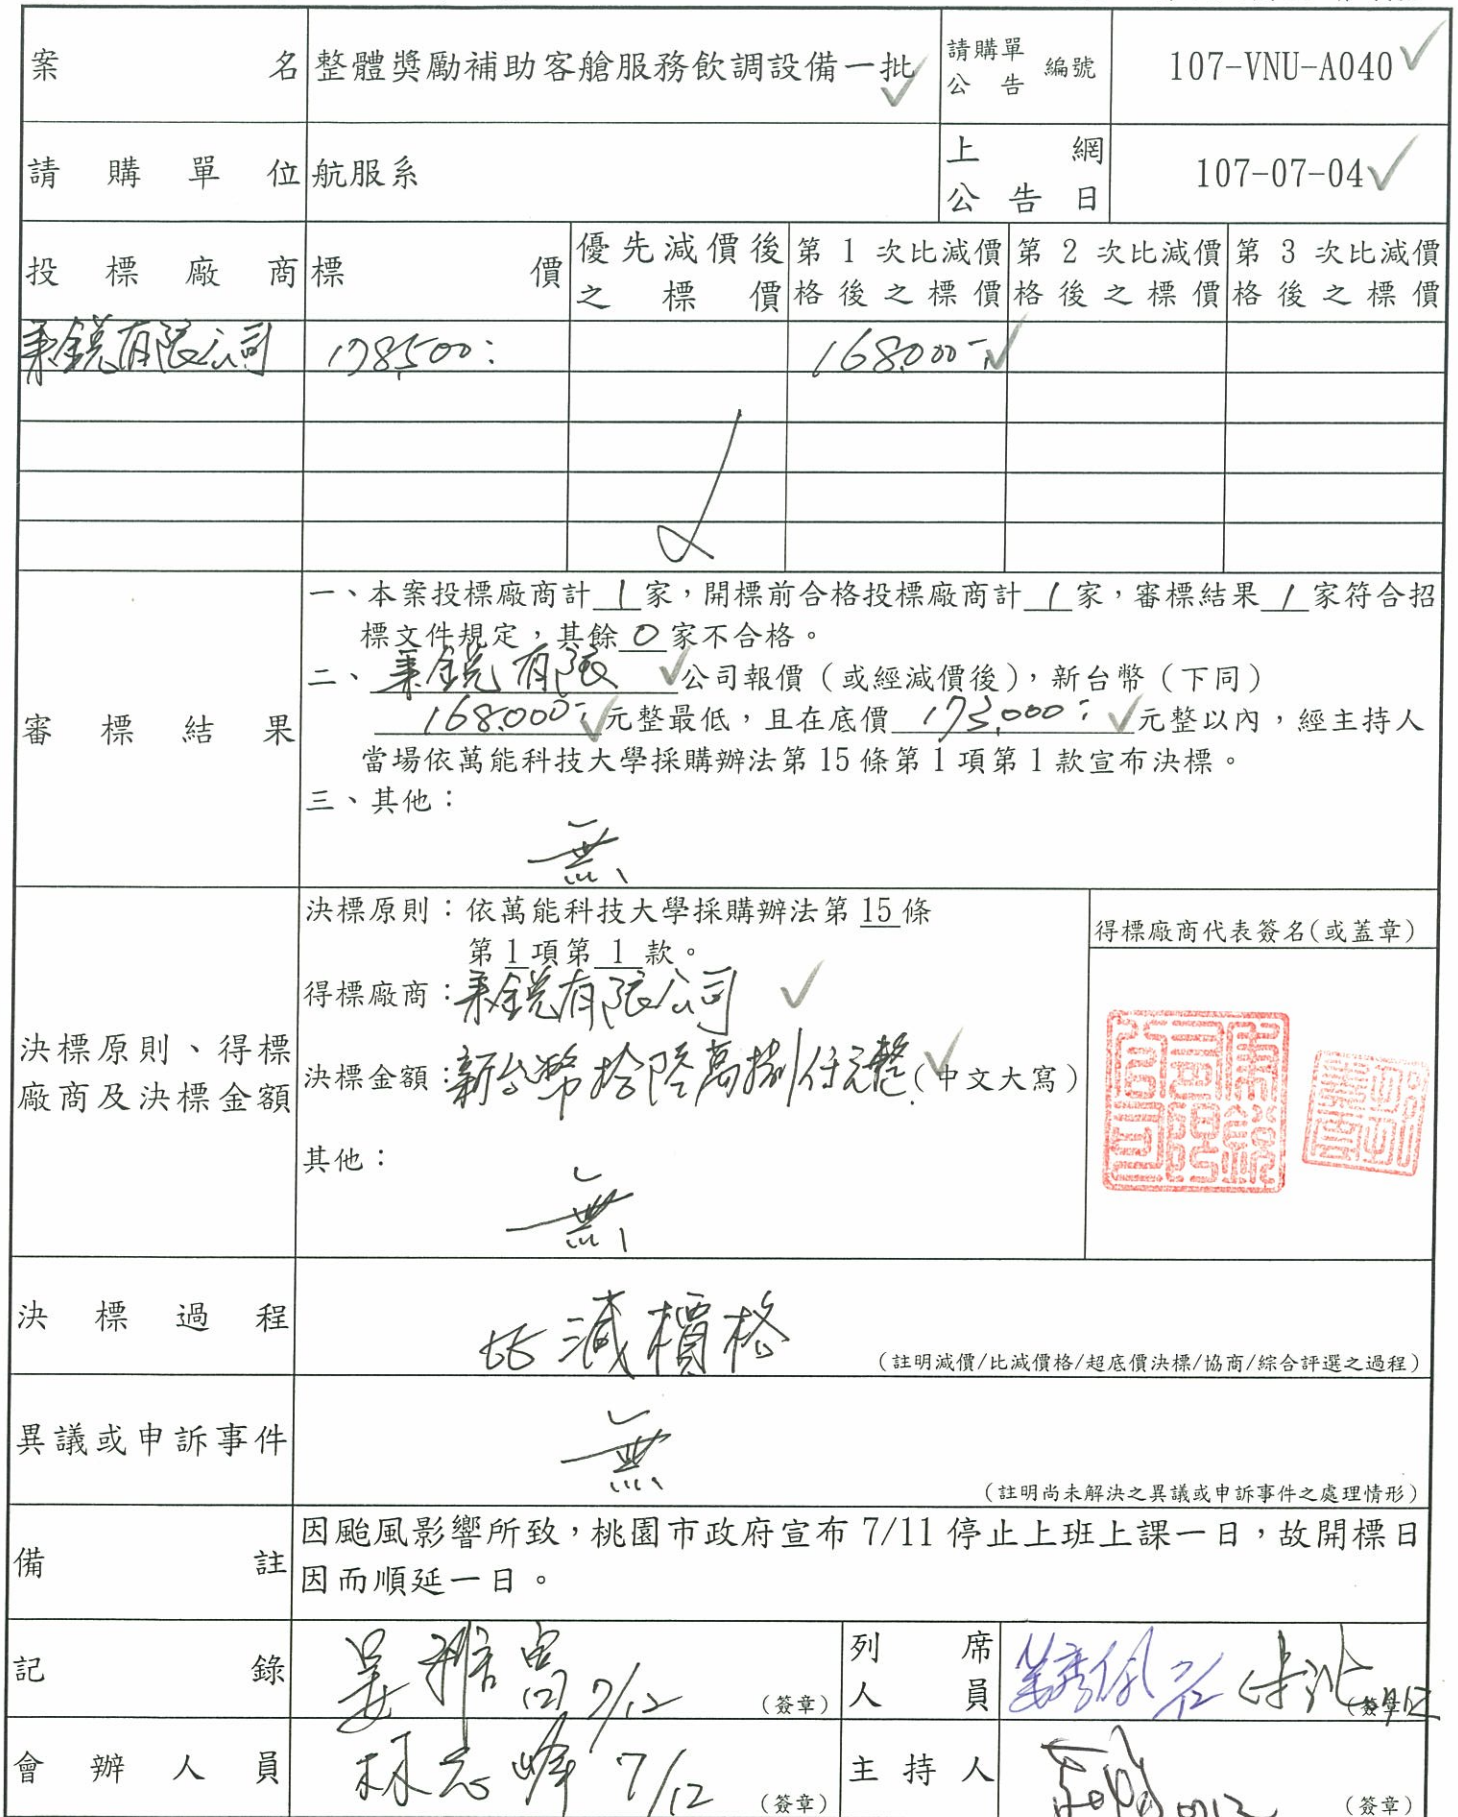 案名 整體獎勵補助客艙服務飲調設備一批 請購單公告編號 107-VNU-A040
請購單位 航服系 上網公告日 107-07-04
投標廠商 標價 優先減價後之標價 第1次比減價格後之標價 第2次比減價格後之標價 第3次比減價格後之標價
秉鋭有限公司 178,500: 168,000-
審標結果
一、本案投標廠商計 1 家，開標前合格投標廠商計 1 家，審標結果 1 家符合招
標文件規定，其餘 0 家不合格。
二、秉鋭有限 公司報價（或經減價後），新台幣（下同）
168,000: 元整最低，且在底價 173,000: 元整以內，經主持人
當場依萬能科技大學採購辦法第 15 條第 1 項第 1 款宣布決標。
三、其他：
無
決標原則、得標廠商及決標金額
決標原則：依萬能科技大學採購辦法第 15 條
第 1 項第 1 款。
得標廠商：秉鋭有限公司
決標金額：新台幣拾陸萬捌仟元整(中文大寫)
其他：
無
得標廠商代表簽名(或蓋章)
決標過程 比減價格
(註明減價/比減價格/超底價決標/協商/綜合評選之過程)
異議或申訴事件 無
(註明尚未解決之異議或申訴事件之處理情形)
備註 因颱風影響所致，桃園市政府宣布 7/11 停止上班上課一日，故開標日
因而順延一日。
記錄 7/12 (簽章) 列席人員 7/12 (簽章)
會辦人員 林志峰 7/12 (簽章) 主持人 (簽章)